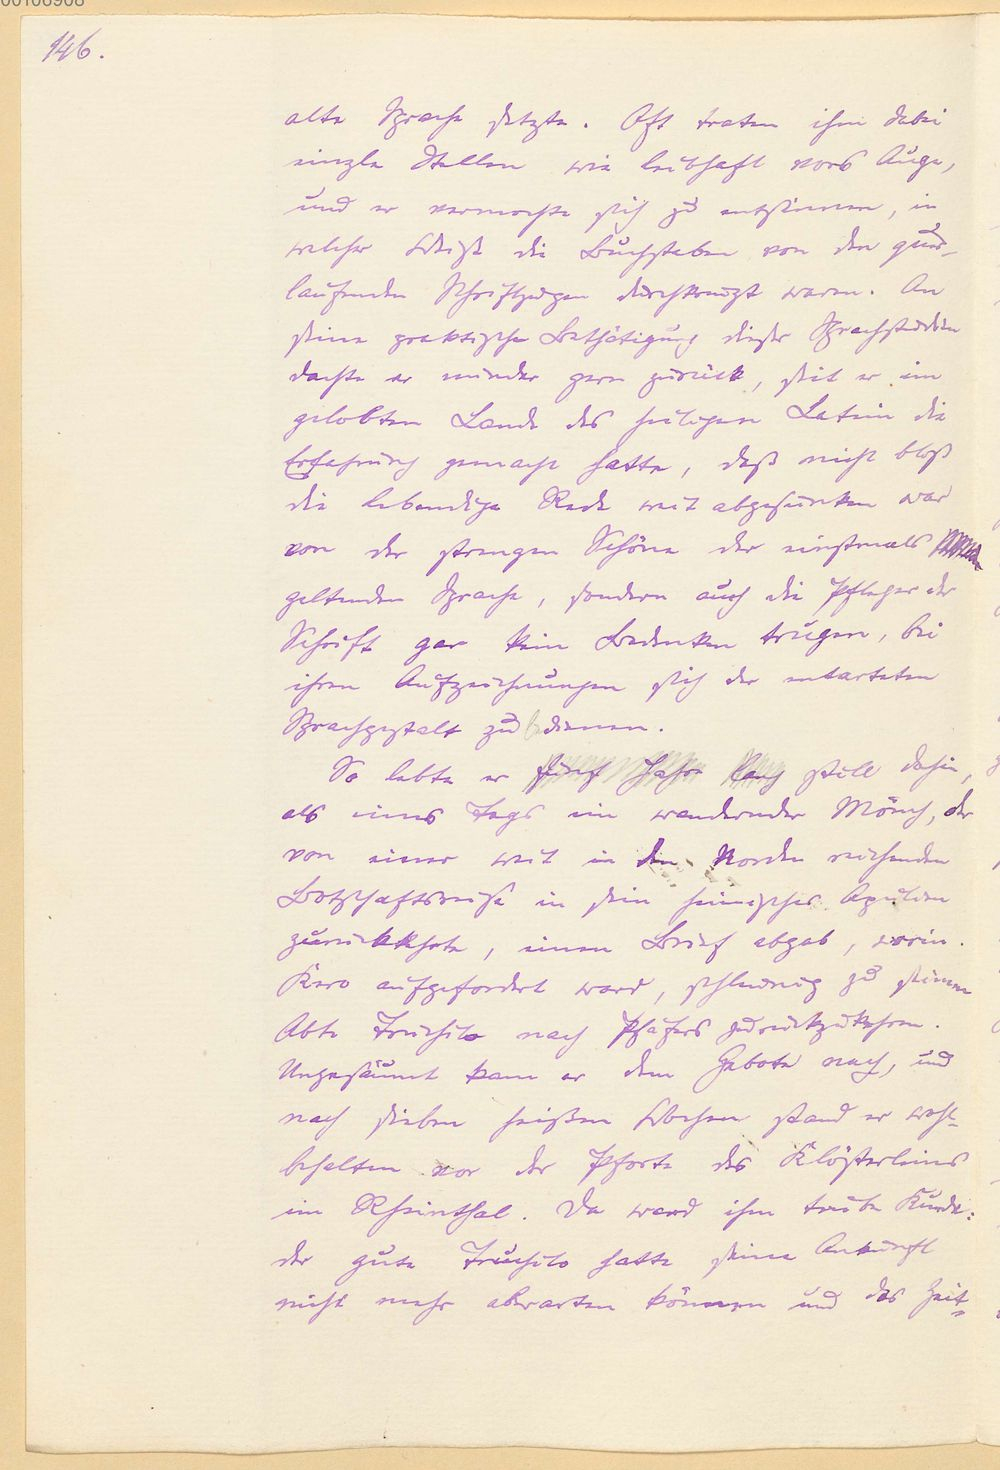 146.
alte Sprache setzte. Oft traten ihm dabei
einzle Stellen wie leibhaft vors Auge,
und er vermochte sich zu entsinnen, in
welcher Weise die Buchstaben von den quer-
laufenden Schriftzügen durchkreuzt waren. An
seine praktische Bethätigung dieser Sprachstudien
dachte er minder gern zurück, seit er im
gelobten Lande des heiligen Latein die
Erfahrung gemacht hatte, daß nicht bloß
die lebendige Rede weit abgesunken war
von der strengen Schöne der einstmals
geltenden Sprache, sondern auch die Pfleger der
Schrift gar kein Bedenken trugen, bei
ihren Aufzeichnungen sich der entarteten
Sprachgestalt zu bedienen.
So lebte er fünf Jahre lang still dahin,
als eines Tags ein wandernder Mönch, der
von einer weit in den Norden reichenden
Botschaftsreise in sein heimisches Apulien
zurückkehrte, einen Brief abgab, worin
Kero aufgefordert ward, schleunig zu seinem
Abte Truchilo nach Pfäfers zurückzukehren.
Ungesäumt kam er dem Gebote nach, und
nach sieben heißen Wochen stand er wohl-
behalten vor der Pforte des Klösterleins
im Rheinthal. Da ward ihm trübe Kunde:
der gute Truchilo hatte seine Ankunft
nicht mehr abwarten können und das Zeit-